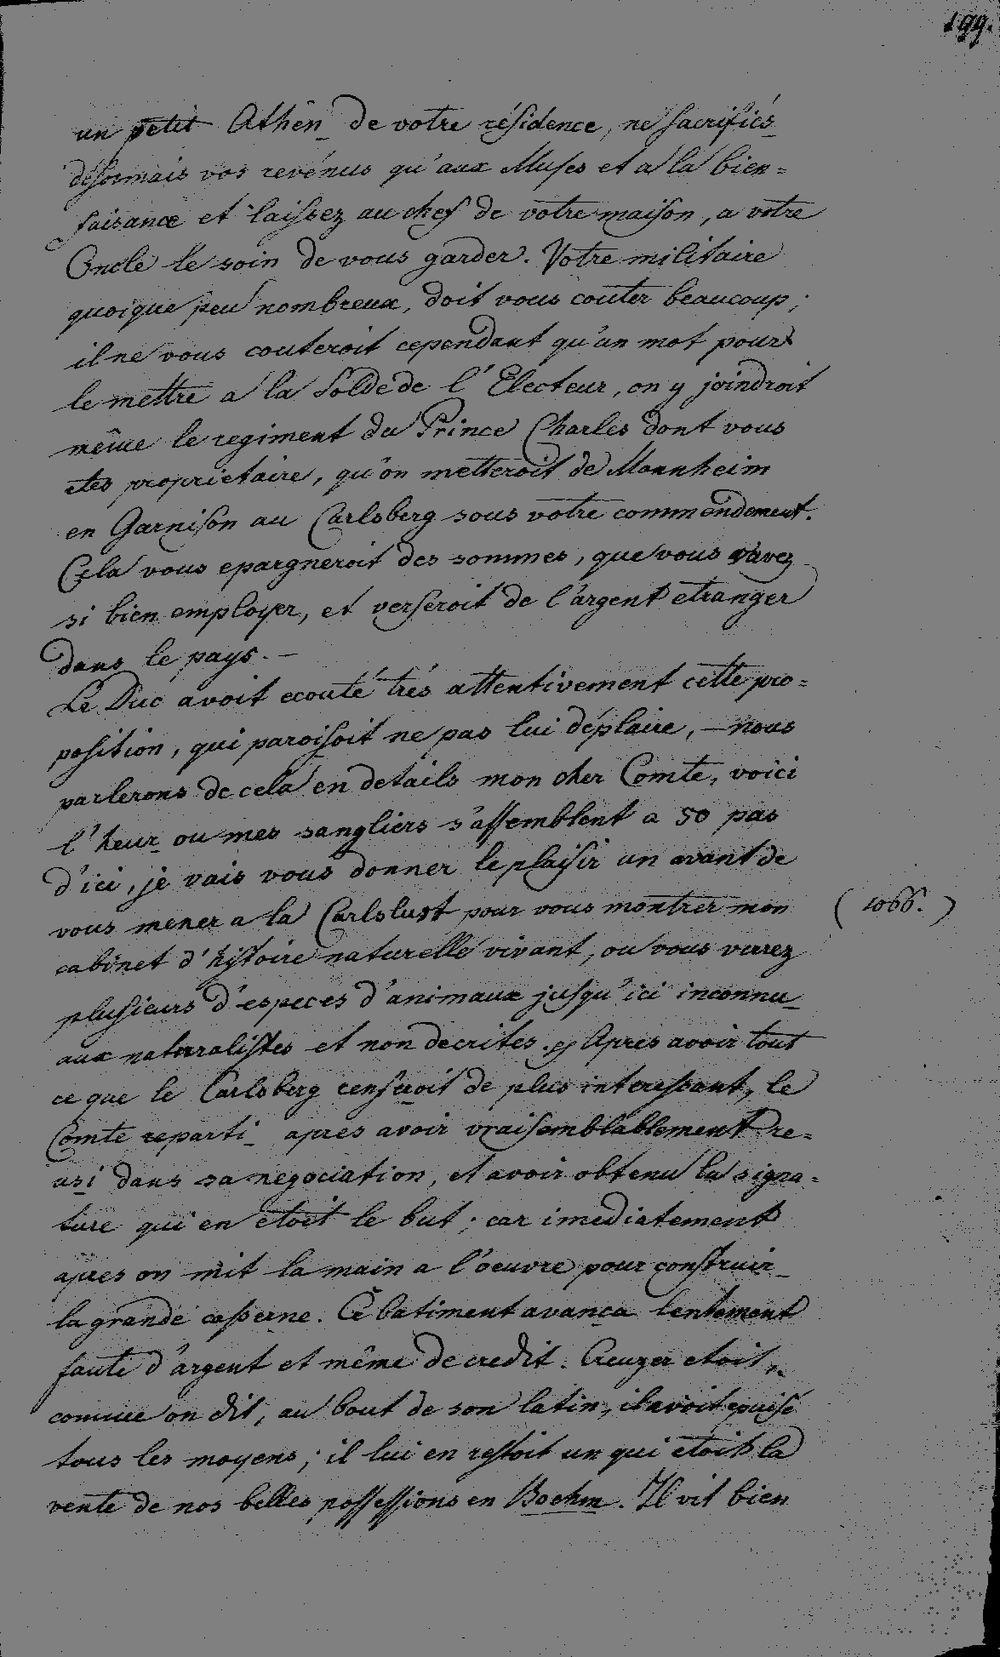 199.
un petit Athên de votre résidence, ne sacrifiés
désormais vos revénus qu'aux Muses et a la bien=
faisance et laissez au chef de votre maison, a votre
Oncle le soin de vous garder. Votre militaire
quoique peu nombreux, doit vous couter beaucoup;
il ne vous couteroit cependant qu'un mot pour
le mettre a la solde de l'Electeur, on y joindroit
même le regiment du Prince Charles dont vous
etes proprietaire, qu'on metteroit de Mannheim
en Garnison au Carlsberg sous votre commendement.
Cela vous epargneroit des sommes, que vous savez
si bien employer, et verseroit de l'argent etranger
dans le pays. —
Le Duc avoit ecouté trés attentivement cette pro=
position, qui paroisoit ne pas lui déplaire, — nous
parlerons de cela en details mon cher Comte, voici
l'heur ou mes sangliers s'assemblent a 50 pas
d'ici, je vais vous donner le plaisir un avant de
vous mener a la Carlslust pour vous montrer mon
(1066.)
cabinet d'hystoire naturelle vivant, ou vous verrez
plusieurs d'especes d'animaux jusqu'ici inconnu
aux naturalistes et non decrites. Apres avoir tout
ce que le Carlsberg renfrroit de plus interessant, le
Comte reparti apres avoir vraisemblablement re=
usi dans sa negociation, et avoir obtenu la signa=
ture qui en etoit le but; car imediatement
apres on mit la main a l'oeuvre pour construir
la grande caserne. Ce batiment avança lentement
faute d'argent et même de credit. Creuzer etoit,
comme on dit, au bout de son latin, il avoit epuisé
tous les moyens; il lui en restoit un qui etoit la
vente de nos belles possessions en Boehm. Il vit bien